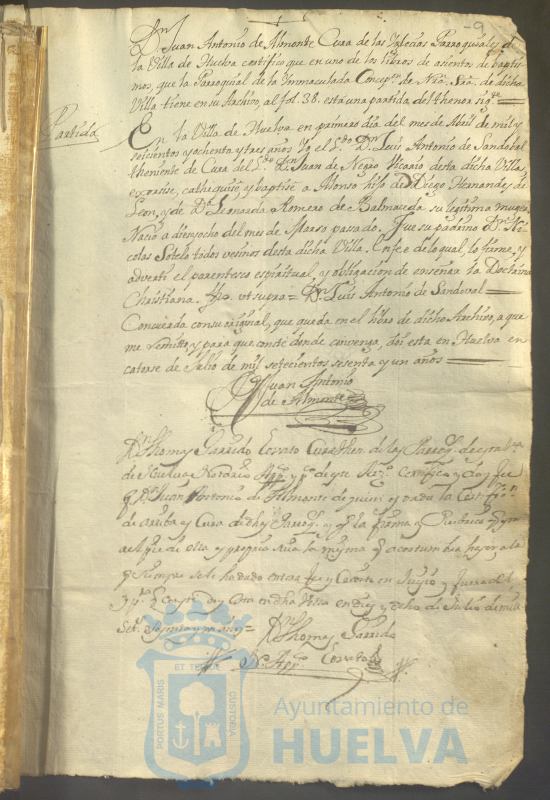 -9
Dn. Juan Antonio de Almonte Cura de las Iglecias Parroquiales de
la Villa de Huelva certifico que en uno de los libros de asientos de baptis-
mos, que la Parroquial de la Immaculada Concepn. de Nra. Sra. de dicha
Villa tiene en su Archivo, al fol. 38. está una partida del thenor sigte.
Partida
En la Villa de Huelva en primero dia del mes de Abril de mil y
seiscientos y ochenta y tres años Yo el Ldo. Dn. Luis Antonio de Sandobal
theniente de Cura del Ldo. Dn. Juan de Negro Vicario desta dicha Villa,
exorsise, cathequise y baptisé a Alonso hijo de Diego Hernandes de
Leon, y de Da. Leonarda Romero de Balmaceda su legitima muger
Nacio a dies y ocho del mes de Marso pasado. fue su padrino Dn. Ni-
colas Sotelo todos vesinos desta dicha Villa. En fe de lo qual, lo firmé, y
advertí el parentesco espiritual, y obligacion de enseñar la Doctrina
Christiana. fho. ut supra = Dn. Luis Antonio de Sandoval
Concuerda con su original, que queda en el libro de dicho Archivo, a que
me remitto, y para que conste donde convenga, doi esta en Huelva en
catorse de Julio de mil setecientos sesenta y un años
Dn. Juan Antonio
de Almonte
Dn. Thomas Garrido Cura de las Parroqs. de esta Va.
de Huelva Notario App. certifico y doy fee
q Dn. Juan Antonio de Almonte de quien
de arriba y Cura de dhas Parroqs. y la firma
al pie de ella la misma q acostumbra hazer, a la
q siempre se le ha dado entera fee y
doy esta en dha Villa en Julio de mill
Dn. Thomas Garrido
No. App.
PORTUS MARIS ET TERRAE CUSTODIA
Ayuntamiento de
HUELVA